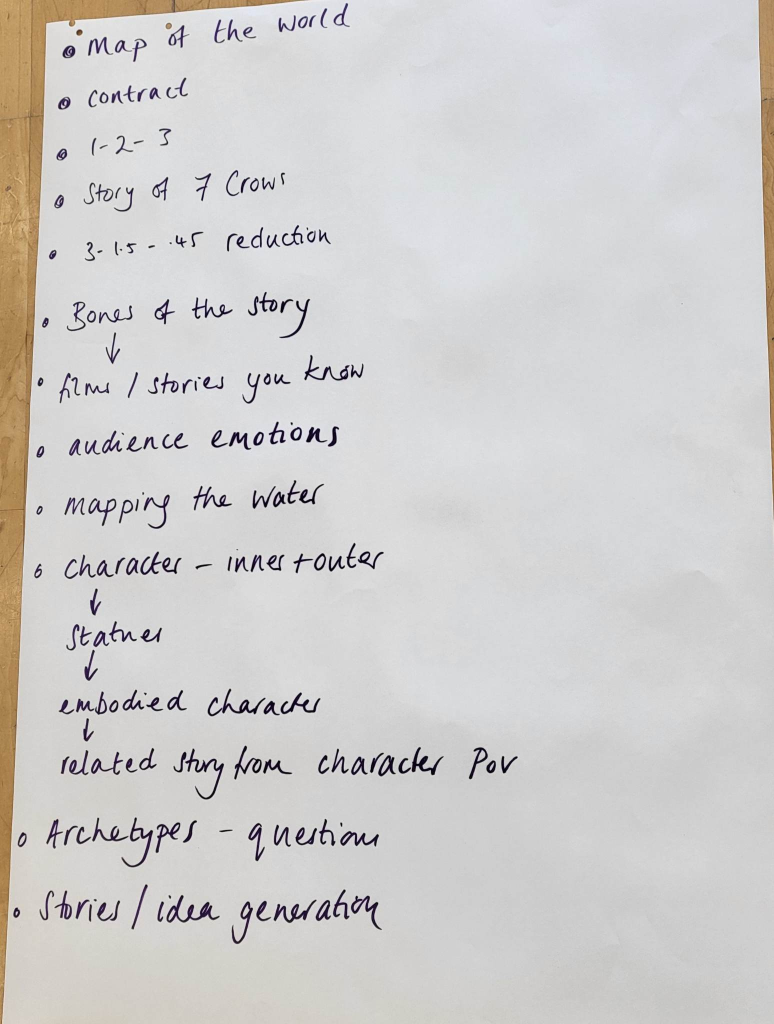 • Map of the world
• Contract
• 1-2-3
• Story of 7 Crows
• 3-1.5-.45 reduction
• Bones of the story
↓
• films / stories you know
• audience emotions
• mapping the water
• Character - inner + outer
↓
Statues
↓
embodied character
↓
related story from character POV
• Archetypes - questions
• Stories / idea generation